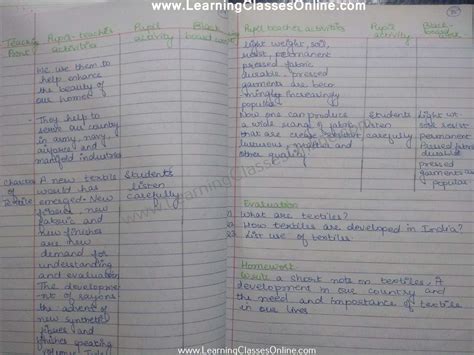 www.LearningClassesOnline.com
Teaching Point
Pupil-teacher activities
Pupil activity
Black board work
We use them to
help enhance
the beauty of
our homes
- They help to
serve our country
in army, navy
airforce and
manifold industries
A new textiles
would has
emerged. New
fibres, new
fabric and
new finishes
are new
demand for
understanding
and evaluation
The development
of rayons
the advent of
new synthetic
fibres and
finishes
Students
listen
carefully
Pupil teacher activities
Pupil's activity
Black board work
light weight, soil,
resist, permanent
pressed fabric
durable, pressed
garments are beco-
ming increasingly
popular
Now one can produce
a wide range of fabric
that are crease resistant
luxurious, and
other quality.
Students
listen
carefully
Light wt
soil resist
permanent
Pressed fabric
durable
pressed
garments are
popular
Evaluation
What are textiles?
How textiles are developed in India?
List use of textiles.
Homework
Write a short note on textiles. A
development in our country and
the need and importance of textile
in our lives
www.LearningClassesOnline.com
www.LearningClassesOnline.com